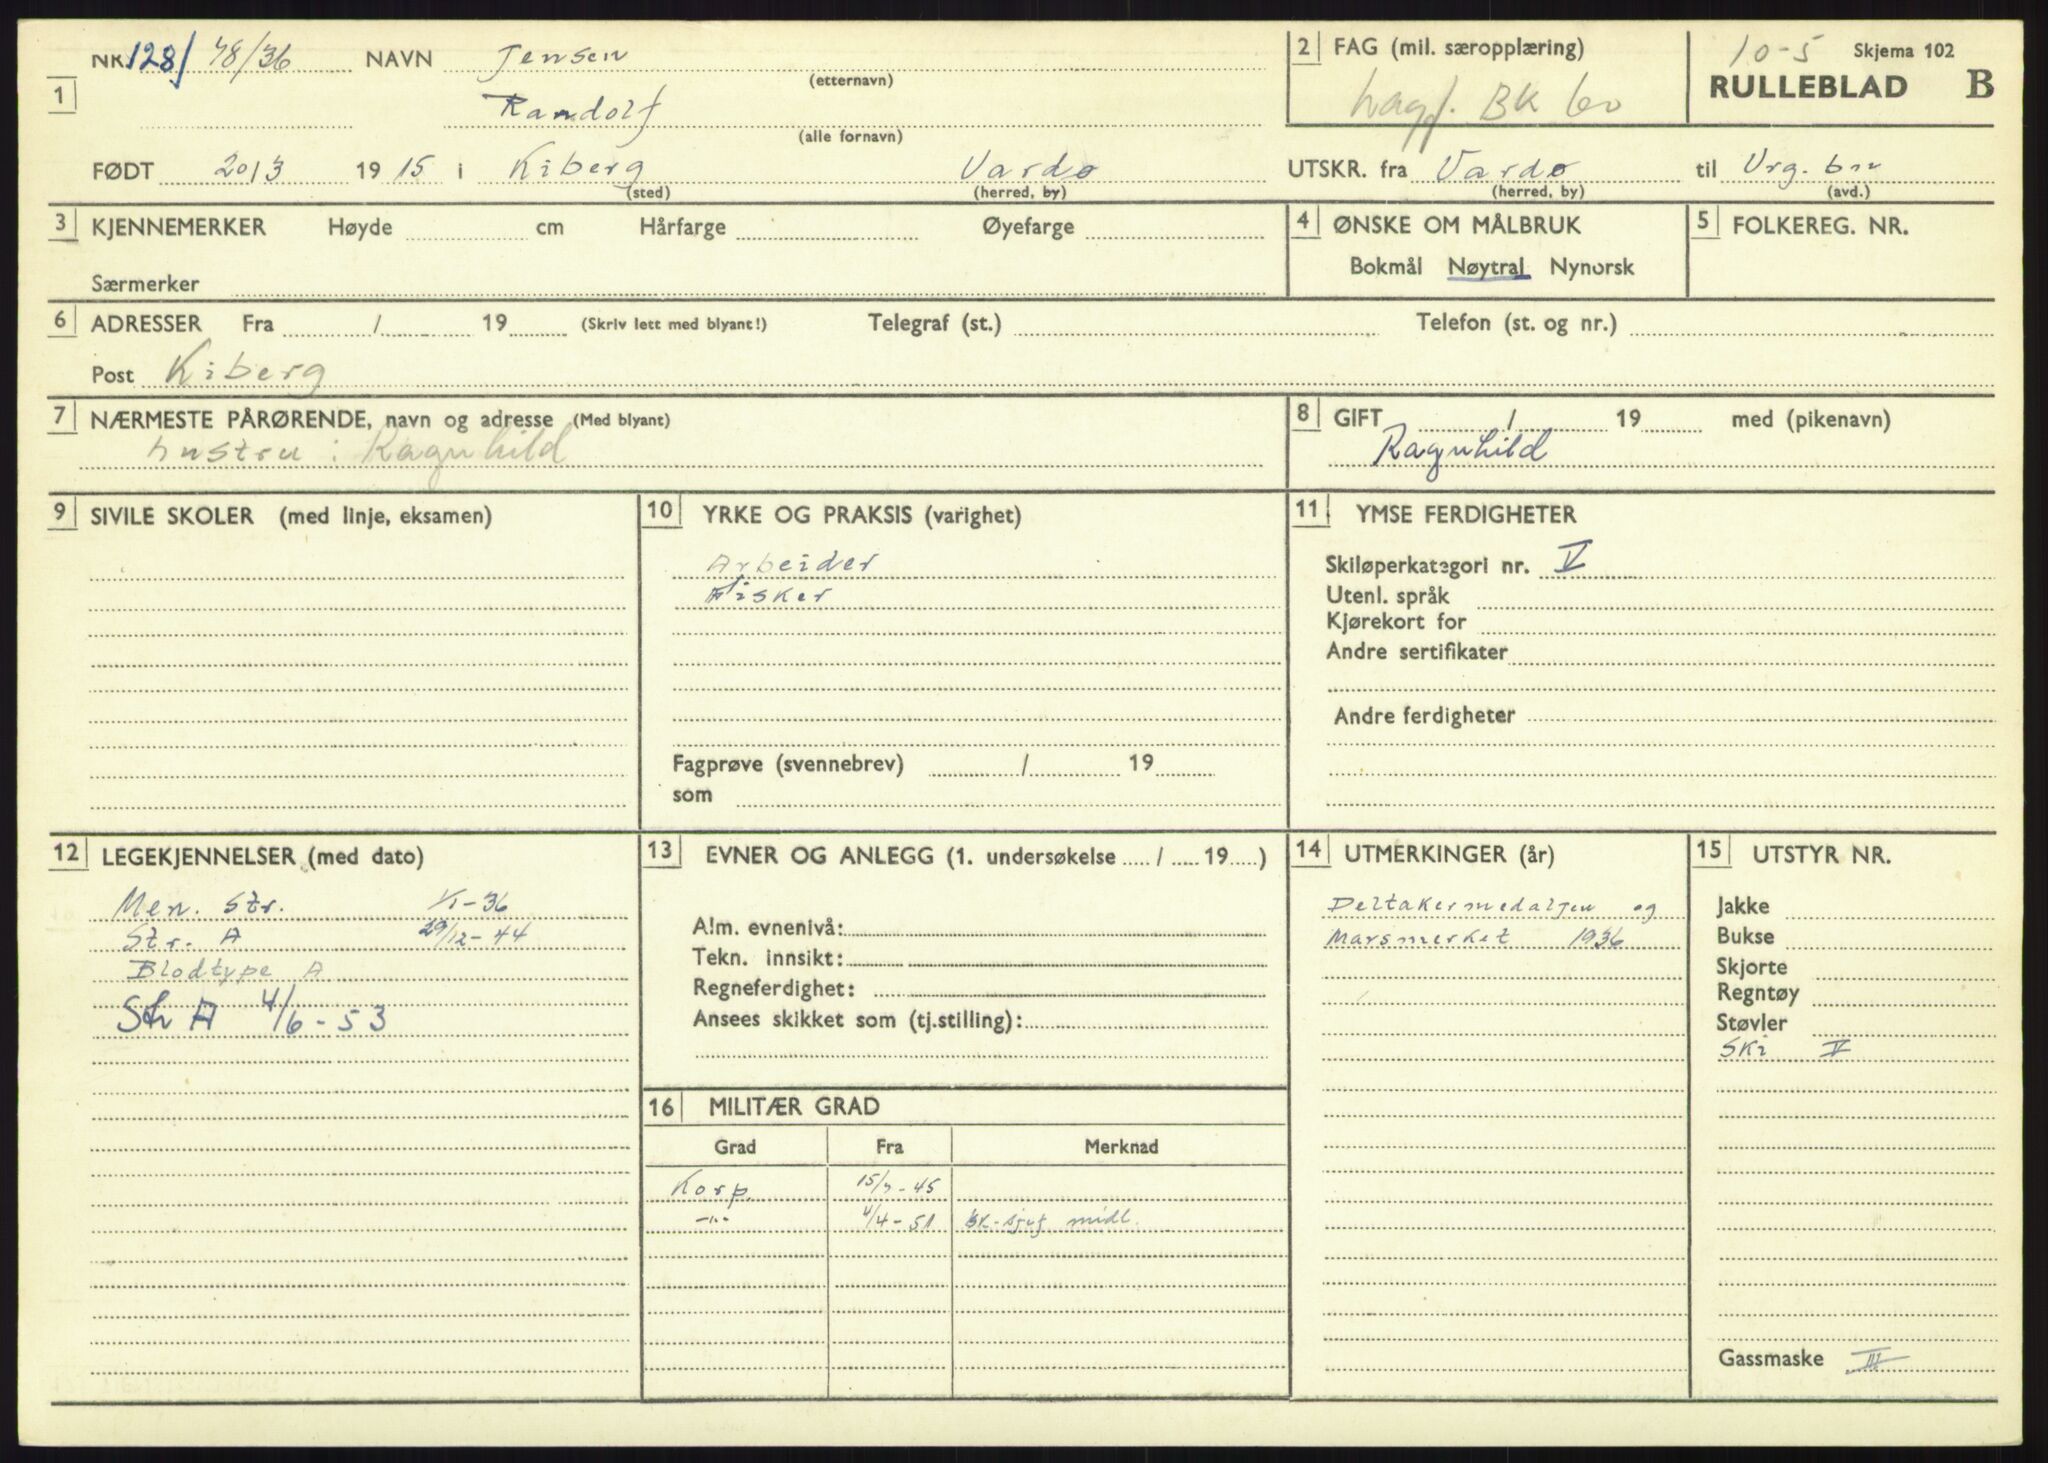 NR. 128/ 48/36 NAVN Jensen
(etternavn)
1
Randolf
(alle fornavn)
FØDT 20/3 19 15 i Kiberg Vardø
(sted) (herred, by)
2 FAG (mil. særopplæring)
Lagf. BK 60
10-5 Skjema 102
RULLEBLAD B
UTSKR. fra Vardø til Vrg. bn
(herred, by) (avd.)
3 KJENNEMERKER Høyde cm Hårfarge Øyefarge
Særmerker
4 ØNSKE OM MÅLBRUK
Bokmål Nøytral Nynorsk
5 FOLKEREG. NR.
6 ADRESSER Fra / 19 (Skriv lett med blyant!) Telegraf (st.) Telefon (st. og nr.)
Post Kiberg
7 NÆRMESTE PÅRØRENDE, navn og adresse (Med blyant)
hustru: Ragnhild
8 GIFT / 19 med (pikenavn)
Ragnhild
9 SIVILE SKOLER (med linje, eksamen)
10 YRKE OG PRAKSIS (varighet)
Arbeider
Fisker
Fagprøve (svennebrev) / 19
som
11 YMSE FERDIGHETER
Skiløperkategori nr. V
Utenl. språk
Kjørekort for
Andre sertifikater
Andre ferdigheter
12 LEGEKJENNELSER (med dato)
Men. Str. 1/1-36
Str. A 29/12-44
Blodtype A
Str A 4/6-53
13 EVNER OG ANLEGG (1. undersøkelse / 19 )
Alm. evnenivå:
Tekn. innsikt:
Regneferdighet:
Ansees skikket som (tj.stilling):
14 UTMERKINGER (år)
Deltakermedaljen og
Marsmerket 1936
15 UTSTYR NR.
Jakke
Bukse
Skjorte
Regntøy
Støvler
Ski V
Gassmaske III
16 MILITÆR GRAD
Grad Fra Merknad
Korp. 15/7-45
-"- 4/4-51 BK-sjef midl.